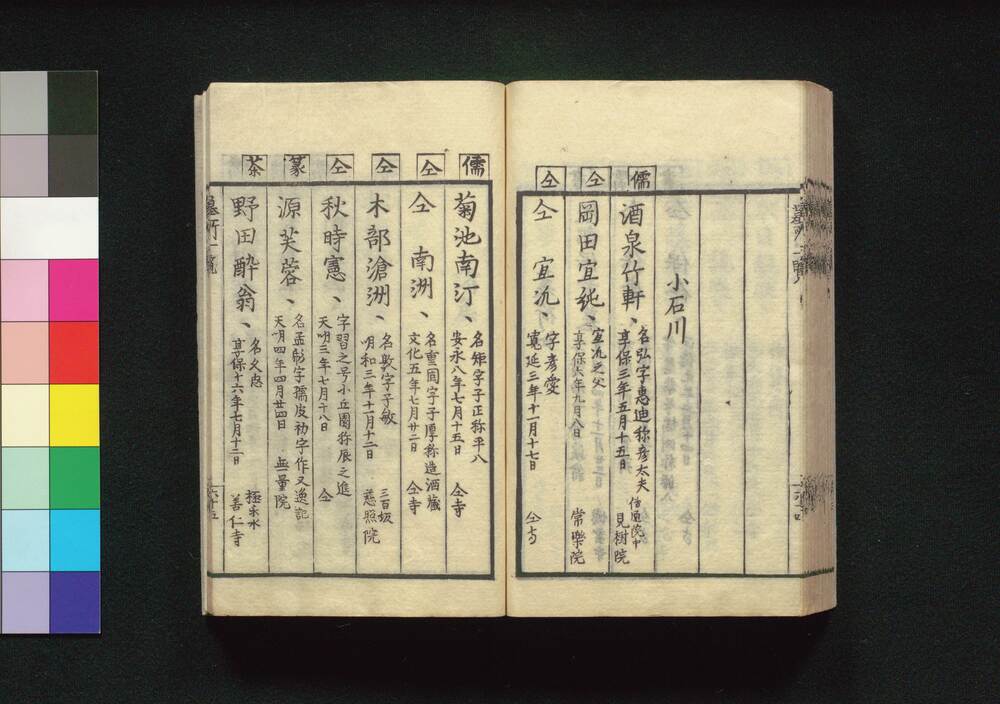 小石川
儒
酒泉竹軒、
名弘字惠迪称彦太夫
享保三年五月十五日
見樹院
仝
岡田宜純、
宜汎之父
享保六年九月八日
常樂院
仝
仝 宜汎、
字彦愛
寛延三年十一月十七日
仝寺
儒
菊池南汀、
名矩字子正称平八
安永八年七月十五日
仝寺
仝
仝 南洲、
名重固字子厚称造酒蔵
文化五年七月廿二日
仝寺
仝
木部滄洲、
名敦字子敏
明和三年十一月十二日
三百坂
慈照院
仝
秋時憲、
字習之号小丘園称辰之進
天明三年七月十八日
仝
篆
源芙蓉、
名孟彪字孺皮初字作又逸記
天明四年四月廿四日
無量院
茶
野田酔翁、
名久忠
享保十六年七月十二日
極楽水
善仁寺
墓所一覧
六十五